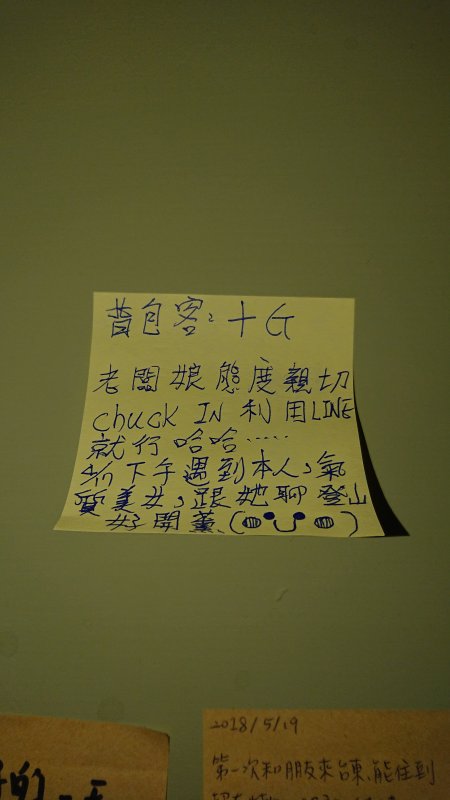 背包客：十G
老闆娘態度親切
chuck IN 利用LINE
就行 哈哈.....
下午遇到本人，氣
質美女，跟她聊登山
好開薰
2018/5/19
第一次和朋友來台東，能住到